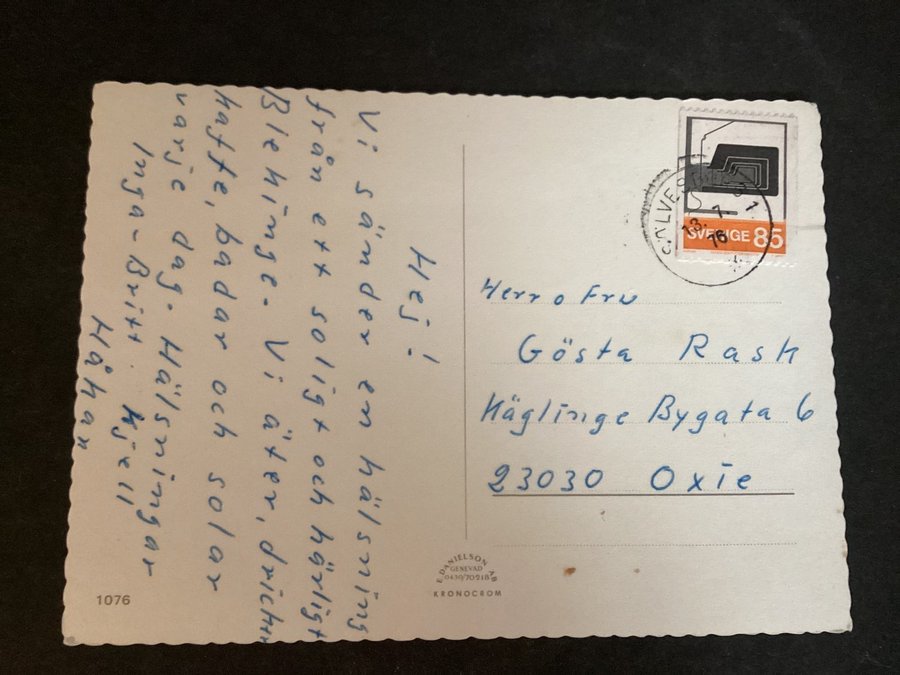 Hej!
Vi sänder en hälsning
från ett soligt och härligt
Blekinge. Vi äter, dricker
kaffe, badar och solar
varje dag. Hälsningar
Inga-Britt. Kjell
Håkan
SVERIGE 85
SÖLVESBORG 1
13. 7. 76
Herr o Fru
Gösta Rask
Käglinge Bygata 6
23030 Oxie
E. DANIELSON AB
GENEVAD
0430/70218
KRONOCROM
1076